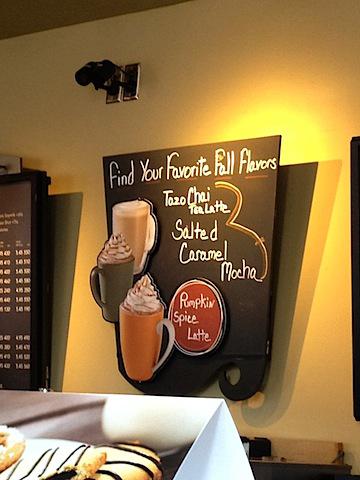 Find Your Favorite Fall Flavors
Tazo Chai
Tea Latte
Salted
Caramel
Mocha
Pumpkin
Spice
Latte